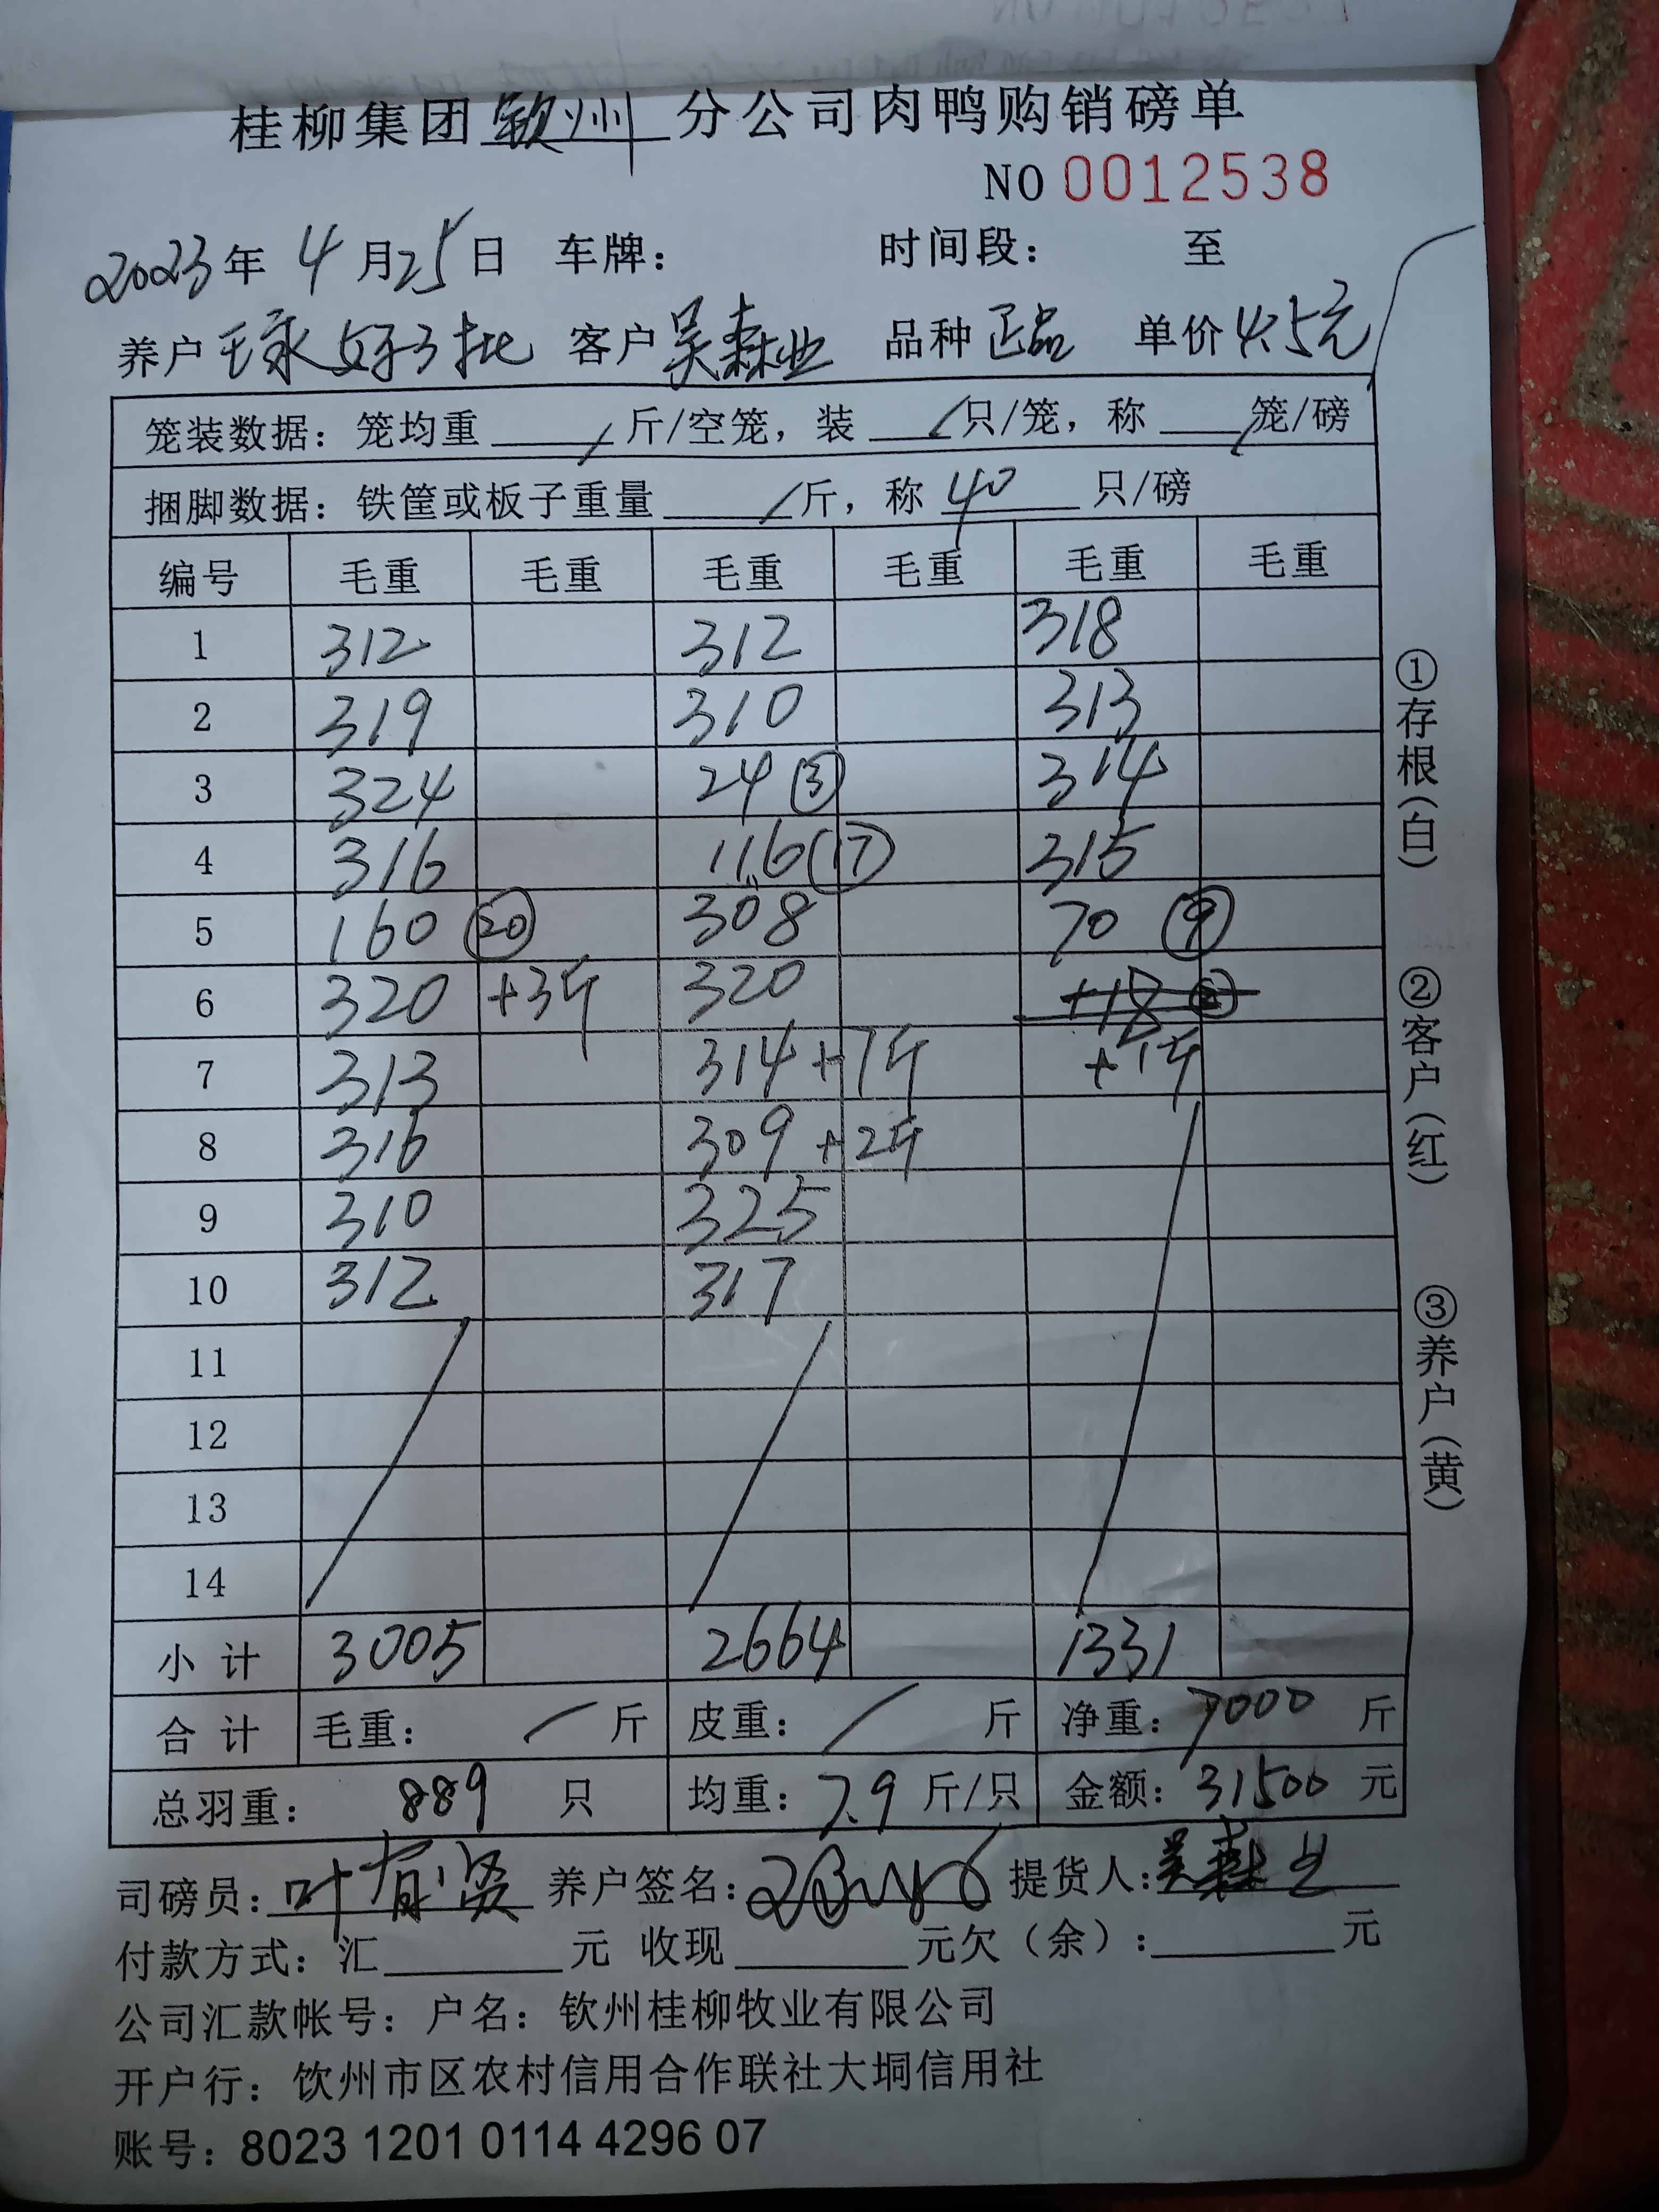 桂柳集团钦州分公司肉鸭购销磅单
NO 0012538
2023年 4月25日 车牌: 时间段: 至
养户 王家好3批 客户 吴森业 品种 正品 单价 4.5元
笼装数据: 笼均重 / 斤/空笼, 装 / 只/笼, 称 / 笼/磅
捆脚数据: 铁筐或板子重量 / 斤, 称 40 只/磅
编号 毛重 毛重 毛重 毛重 毛重 毛重
1 312 312 318
2 319 310 313
3 324 24 ③ 314
4 316 116 ⑰ 315
5 160 ⑳ 308 70 ⑨
6 320 +3斤 320 +18
7 313 314 +1斤 +1斤
8 316 309 +2斤
9 310 325
10 312 317
11
12
13
14
小计 3005 2664 1331
合计 毛重: / 斤 皮重: / 斤 净重: 7000 斤
总羽重: 889 只 均重: 7.9 斤/只 金额: 31500 元
司磅员: 叶育贤 养户签名: 提货人: 吴森业
付款方式: 汇 元 收现 元欠(余): 元
公司汇款帐号: 户名: 钦州桂柳牧业有限公司
开户行: 钦州市区农村信用合作联社大垌信用社
账号: 8023 1201 0114 4296 07
①存根(白) ②客户(红) ③养户(黄)